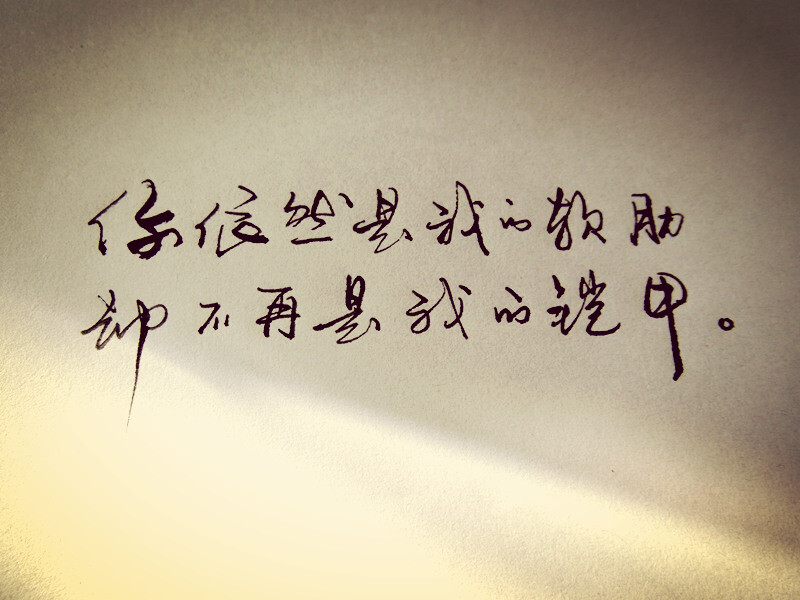 你依然是我的软肋
却不再是我的铠甲。